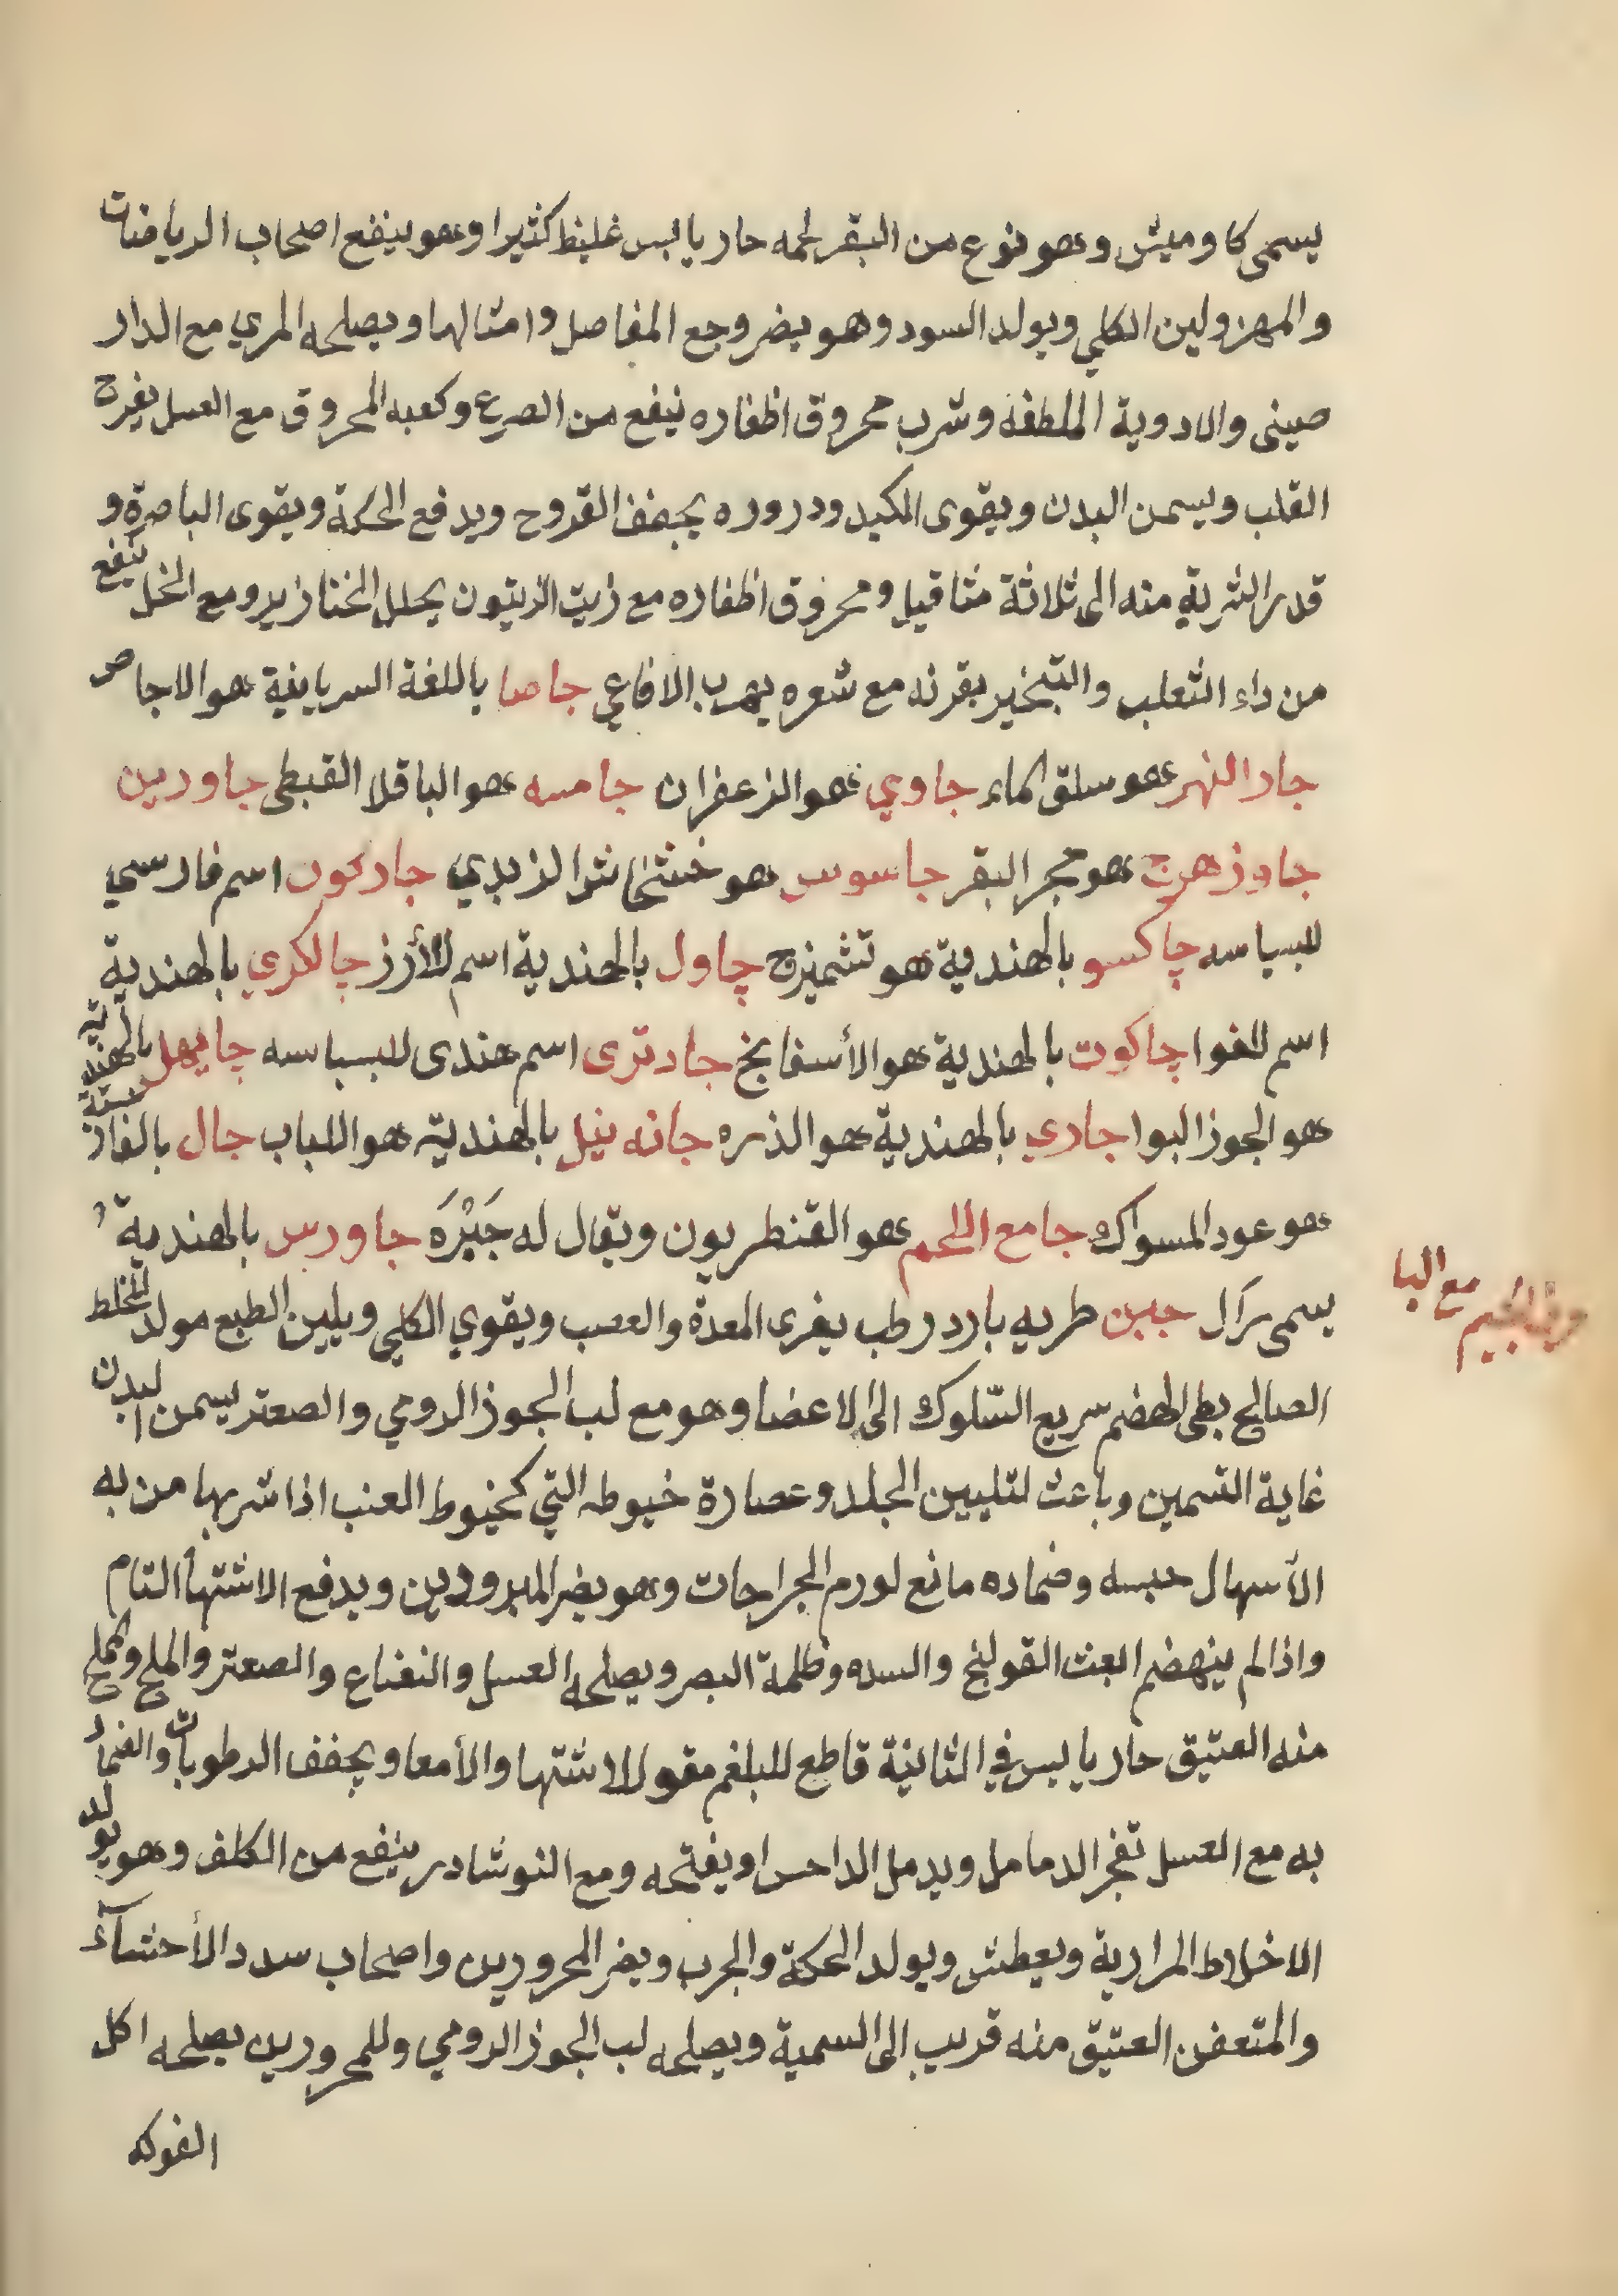 يسمى كاوميش وهو نوع من البقر لحمه حار يابس غليظ كثيرا وهو ينفع اصحاب الرياضات
والمهزولين الكلي ويولد السود وهو يضر وجع المفاصل وامثالها ويصلحه المري مع الدار
صيني والادوية الملطفه وشرب محروق اظفاره ينفع من الصرع وكعبه المحروق مع العسل يفرح
القلب ويسمن البدن ويقوى الكبد ودروره يجفف القروح ويدفع الحكة ويقوى الباصرة و
قدر الشربة منه الى ثلاثة مثاقيل ومحروق اظفاره مع زيت الزيتون يحلل الخنازير ومع الخل ينفع
من داء الثعلب والتبخير بقرنه مع شعره يهرب الافاعي جاصا باللغة السريانية هو الاجاص
جار النهر هو سلق الماء جاوي هو الزعفران جامسه هو الباقلا القبطى جاودين
جاوزهرج هو حجر البقر جاسوس هو خشخاش الزبدي جاركون اسم فارسي
للبسباسه چاكسو بالهندية هو تشميزج چاول بالهندية اسم للأرز جالكري بالهندية
اسم للفوا چاكوت بالهندية هو الأسفانخ جادترى اسم هندى للبسباسه جايهل بالهندية
هو الجوز البوا جاري بالهندية هو الذره جانه نيل بالهندية هو اللباب جال بالفارسية
هو عود المسواك جامع اللحم هو القنطريون ويقال له جَبْرَه جاورس بالهندية
يسمى رَال جبن طريه بارد رطب يغرى المعدة والعصب ويقوي الكلي ويلين الطبع مولد للخلط
الصالح بطى الهضم سريع السّلوك الى الاعضا وهو مع لب الجوز الرومي والصعتر يسمن البدن
غاية التسمين وباعث لتليين الجلد وعصارة خيوطه التي كخيوط العنب اذا شربها من به
الأسهال حبسه وضماده مانع لورم الجراحات وهو يضر المبرودين ويدفع الاشتهأ التام
واذا لم ينهضم ابعث القولنج والسده وظلمة البصر ويصلحه العسل والنعناع والصعتر والملح ومملح
منه العتيق حار يابس في الثانية قاطع للبلغم مقو للاشتها والأمعا ويجفف الرطوبات والضماد
به مع العسل تفجر الدمامل ويدمل الداحس او يفتحه ومع النوشادر ينفع من الكلف وهو يولد
الاخلاط المرارية ويعطش ويولد الحكة والجرب ويضر المحرورين واصحاب سدد الأحشآء
والمتعفن العتيق منه قريب الى السمية ويصلحه لب الجوز الرومي وللمحرورين يصلحه اكل
الفوكه
حرف الجيم مع البا